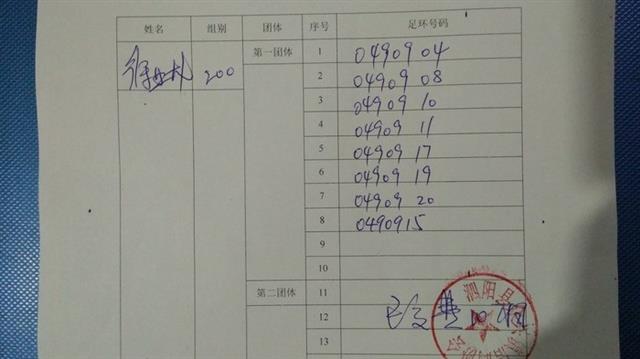 姓名 组别 团体 序号 足环号码
200 第一团体 1 0490904
2 0490908
3 0490910
4 0490911
5 0490917
6 0490919
7 0490920
8 0490915
9
10
第二团体 11
12 已交费
13
泗阳县